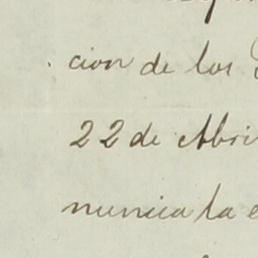 cion de los
22 de Abri
nunciala e